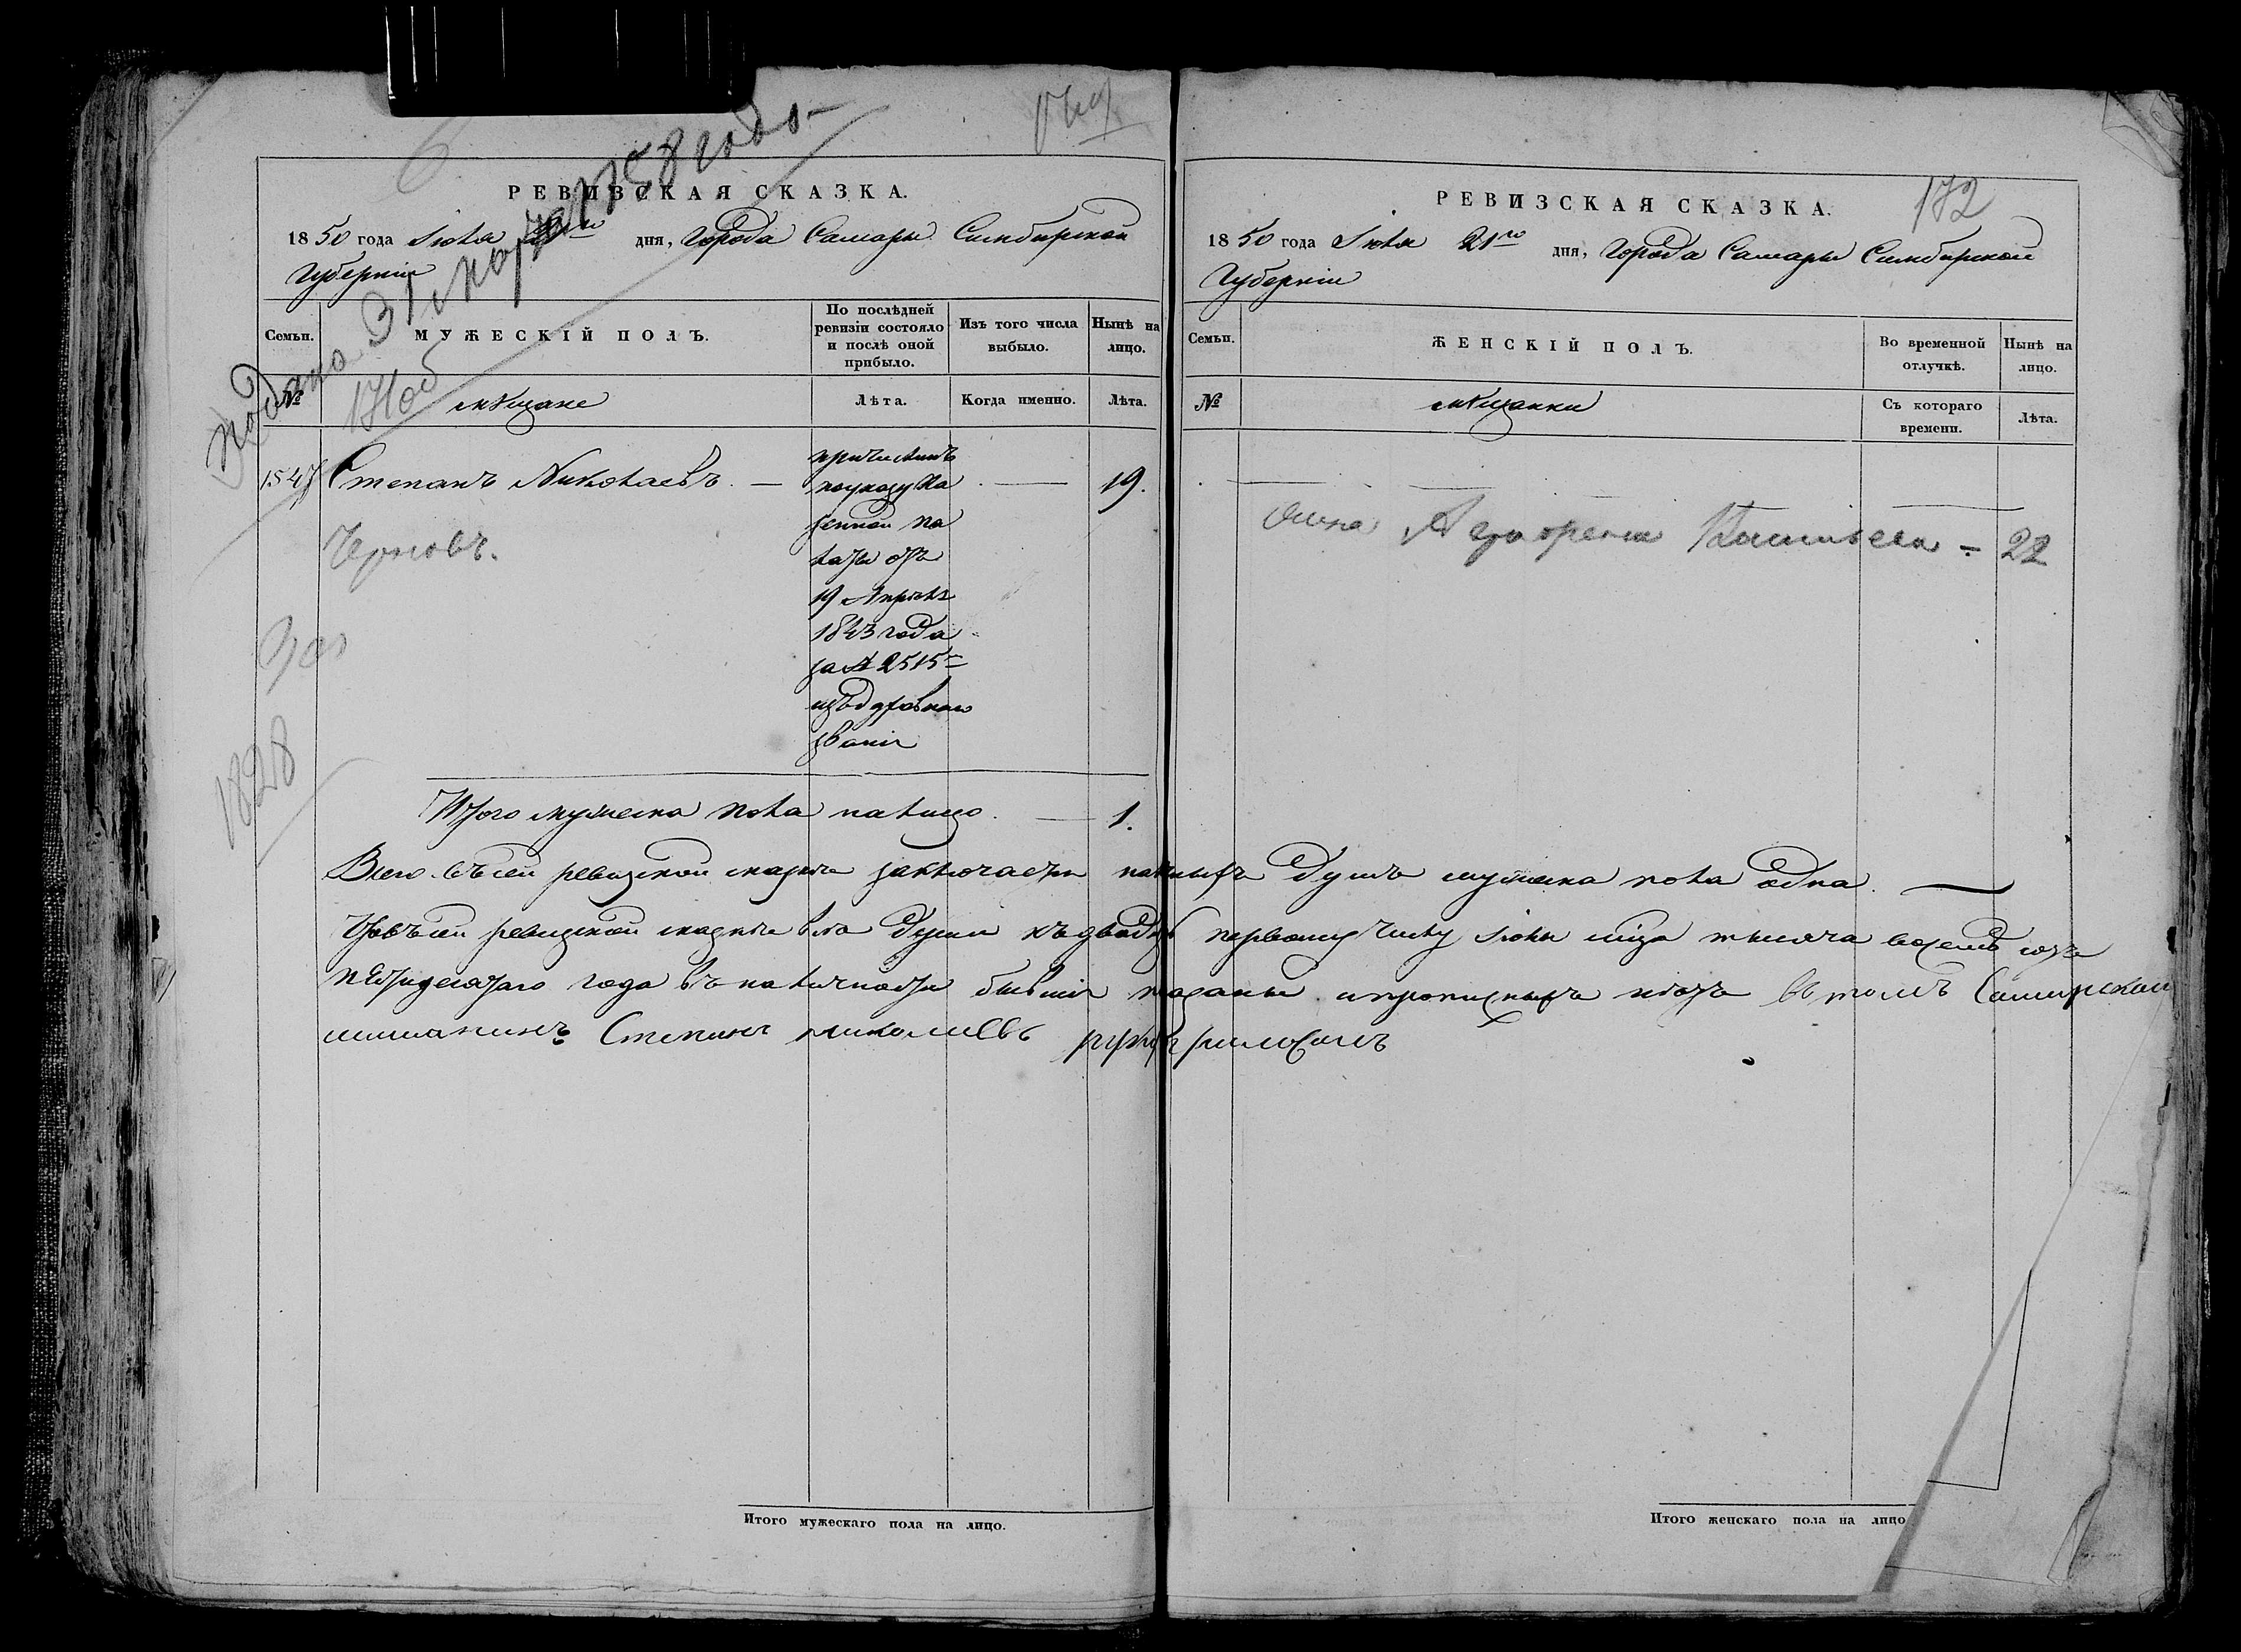 Подано 31 марта 1858 года
РЕВИЗСКАЯ СКАЗКА.
1850 года Іюля дня, города Самары Симбирской
Губерніи
Семьи.
МУЖЕСКІЙ ПОЛЪ.
По послѣдней ревизіи состояло и послѣ оной прибыло.
Изъ того числа выбыло.
Нынѣ на лицо.
№
мѣщане
Лѣта.
Когда именно.
Лѣта.
1547 Степанъ Николаевъ. — 19.
Черновъ.
причисленъ
по указу Ка
зенной Па
латы отъ
19 Апрѣля
1843 года
за № 2515
изъ
званія
1828
Итого мужеска пола налицо. — 1.
РЕВИЗСКАЯ СКАЗКА.
172
1850 года Іюля 21го дня, города Самары Симбирской
Губерніи
Семьи.
ЖЕНСКІЙ ПОЛЪ.
Во временной отлучкѣ.
Нынѣ на лицо.
№
мѣщанки
Съ котораго времени.
Лѣта.
жена Васильева - 22
Всего въ сей ревизской сказкѣ заключается наличныхъ душъ мужеска пола одна. —
Что въ сей ревизской сказкѣ всѣ души къ двадцать первому числу Іюля міца тысяча восемь сотъ
пятидесятаго года въ наличности бывшія показаны и прописныхъ нѣтъ въ томъ Самарской
мѣщанинъ Степанъ Николаевъ руку приложилъ
Итого мужескаго пола на лицо.
Итого женскаго пола на лицо